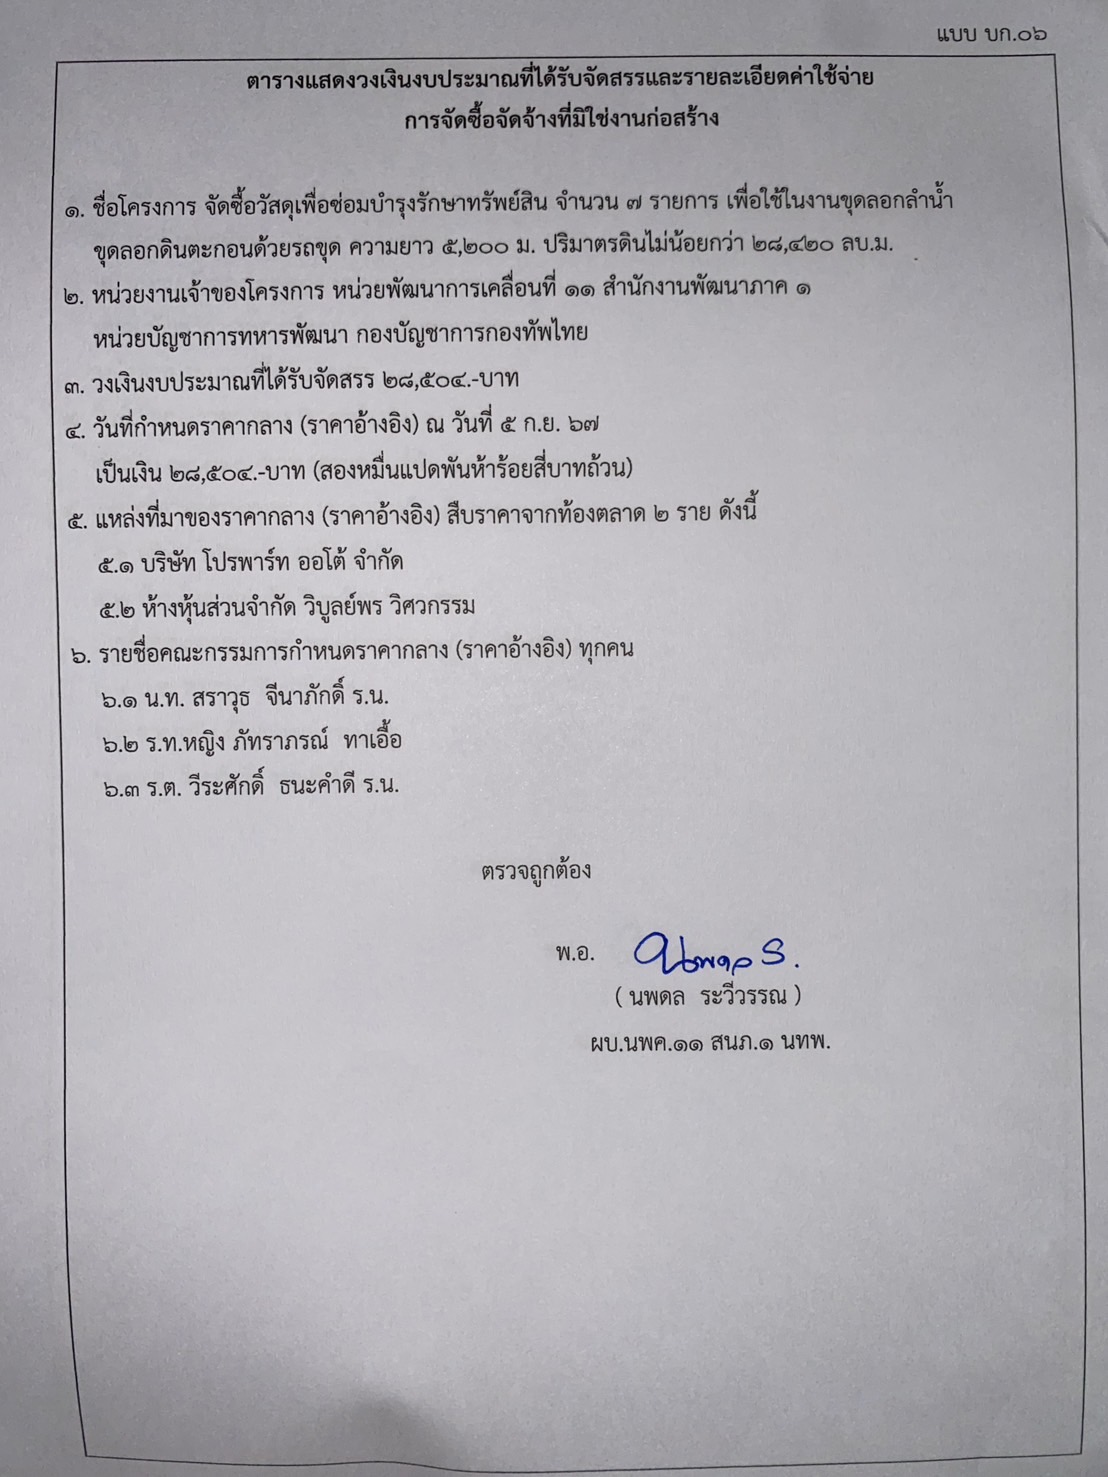 แบบ บก.๐๖
ตารางแสดงวงเงินงบประมาณที่ได้รับจัดสรรและรายละเอียดค่าใช้จ่าย
การจัดซื้อจัดจ้างที่มิใช่งานก่อสร้าง
๑. ชื่อโครงการ จัดซื้อวัสดุเพื่อซ่อมบำรุงรักษาทรัพย์สิน จำนวน ๗ รายการ เพื่อใช้ในงานขุดลอกลำน้ำ
ขุดลอกดินตะกอนด้วยรถขุด ความยาว ๕,๒๐๐ ม. ปริมาตรดินไม่น้อยกว่า ๒๘,๔๒๐ ลบ.ม.
๒. หน่วยงานเจ้าของโครงการ หน่วยพัฒนาการเคลื่อนที่ ๑๑ สำนักงานพัฒนาภาค ๑
หน่วยบัญชาการทหารพัฒนา กองบัญชาการกองทัพไทย
๓. วงเงินงบประมาณที่ได้รับจัดสรร ๒๘,๕๐๔.-บาท
๔. วันที่กำหนดราคากลาง (ราคาอ้างอิง) ณ วันที่ ๕ ก.ย. ๖๗
เป็นเงิน ๒๘,๕๐๔.-บาท (สองหมื่นแปดพันห้าร้อยสี่บาทถ้วน)
๕. แหล่งที่มาของราคากลาง (ราคาอ้างอิง) สืบราคาจากท้องตลาด ๒ ราย ดังนี้
๕.๑ บริษัท โปรพาร์ท ออโต้ จำกัด
๕.๒ ห้างหุ้นส่วนจำกัด วิบูลย์พร วิศวกรรม
๖. รายชื่อคณะกรรมการกำหนดราคากลาง (ราคาอ้างอิง) ทุกคน
๖.๑ น.ท. สราวุธ จีนาภักดิ์ ร.น.
๖.๒ ร.ท.หญิง ภัทราภรณ์ ทาเอื้อ
๖.๓ ร.ต. วีระศักดิ์ ธนะคำดี ร.น.
ตรวจถูกต้อง
พ.อ. นพดล ร.
( นพดล ระวีวรรณ )
ผบ.นพค.๑๑ สนภ.๑ นทพ.